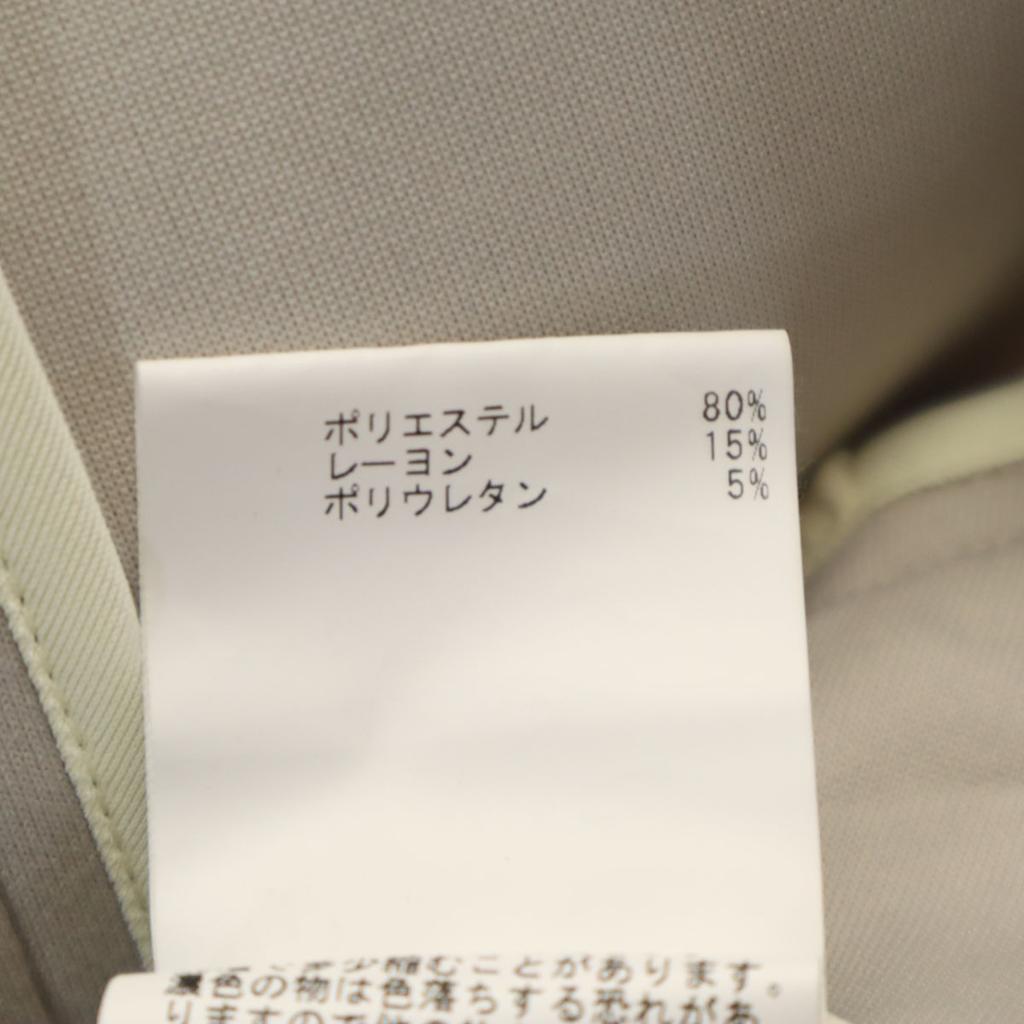 ポリエステル 80%
レーヨン 15%
ポリウレタン 5%
縮むことがあります。
濃色の物は色落ちする恐れがあ
りますので他の